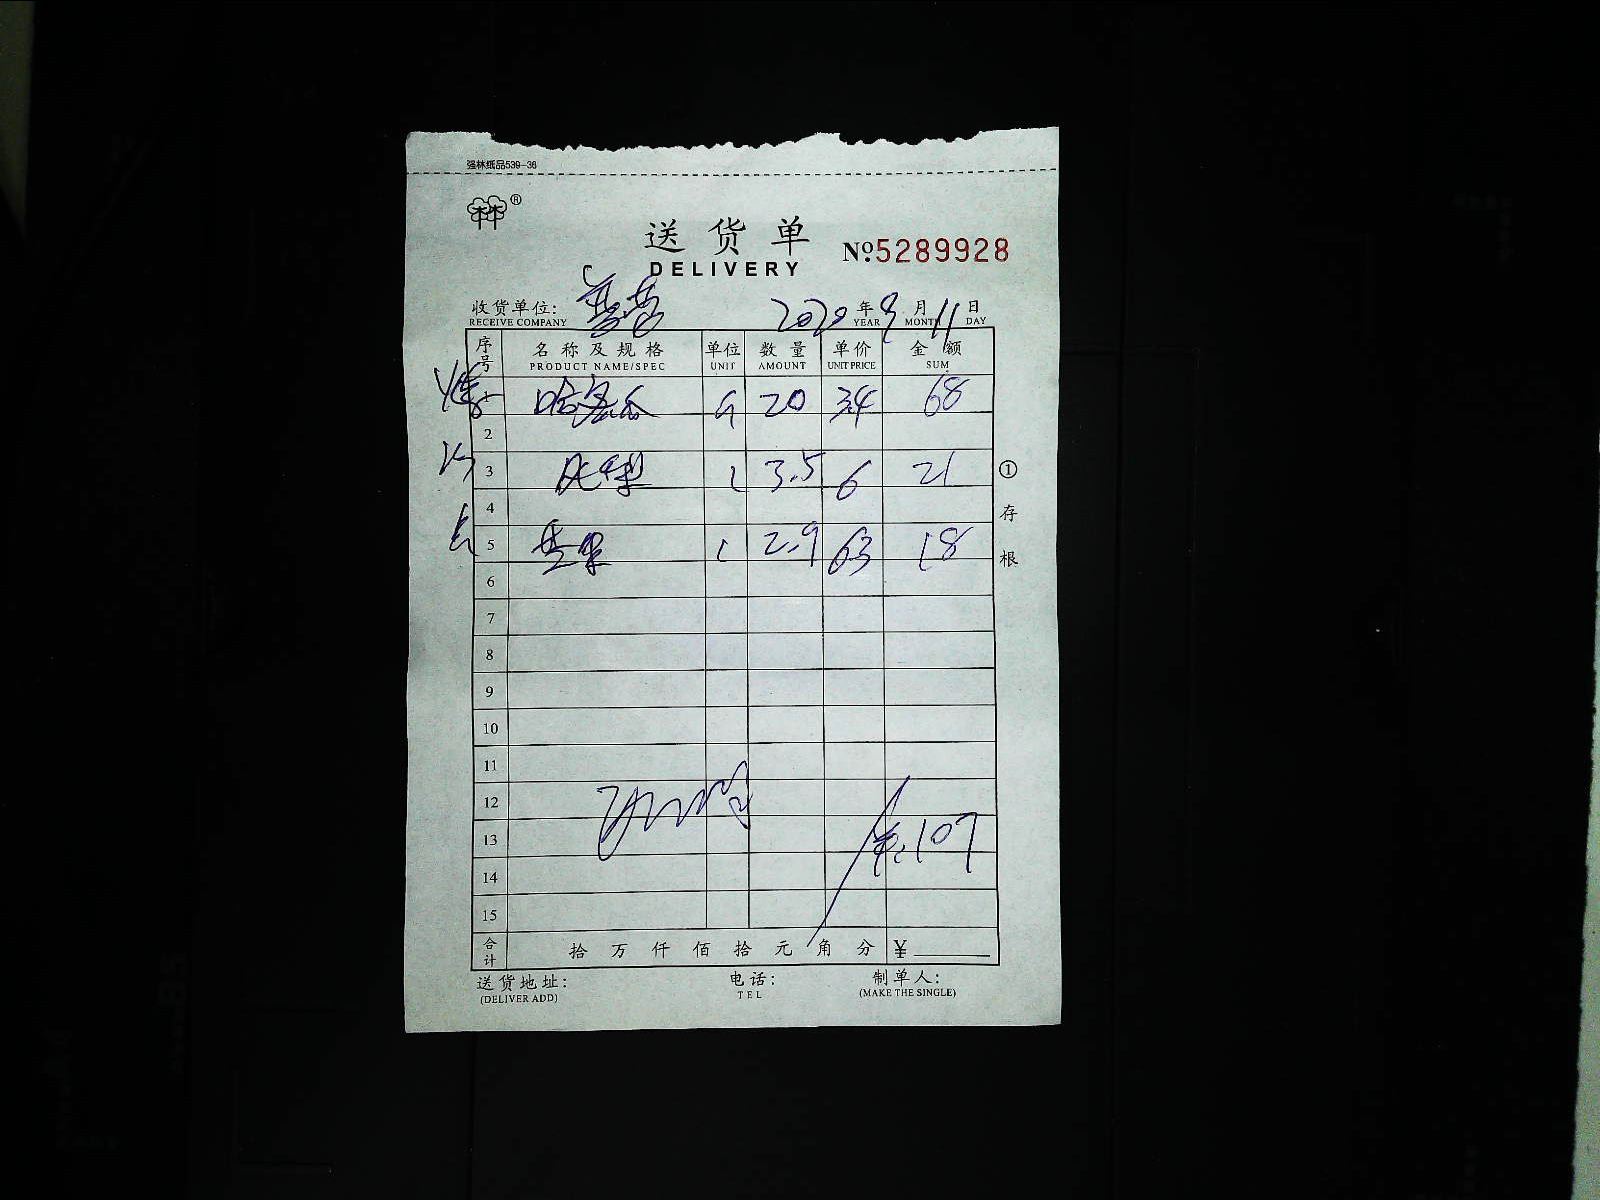 强林纸品539-36
林®
送货单
DELIVERY
№ 5289928
收货单位:
RECEIVE COMPANY
2020年9月11日
YEAR MONTH DAY
序号 名称及规格 单位 数量 单价 金额
PRODUCT NAME/SPEC UNIT AMOUNT UNIT PRICE SUM
1 哈密瓜 斤 20 3.4 68
2
3 皮梨 3.5 6 21
4
5 2.9 63 18
6
7
8
9
10
11
12
13 107
14
15
合计 拾 万 仟 佰 拾 元 角 分 ¥
①存根
送货地址: 电话: 制单人:
(DELIVER ADD) TEL (MAKE THE SINGLE)